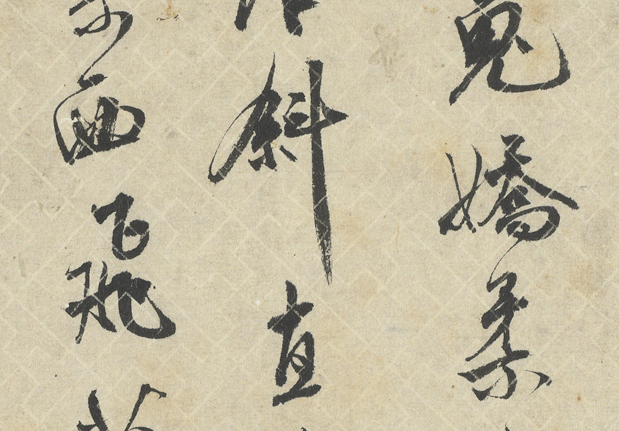 鬼嬌柔
斜直
西飛